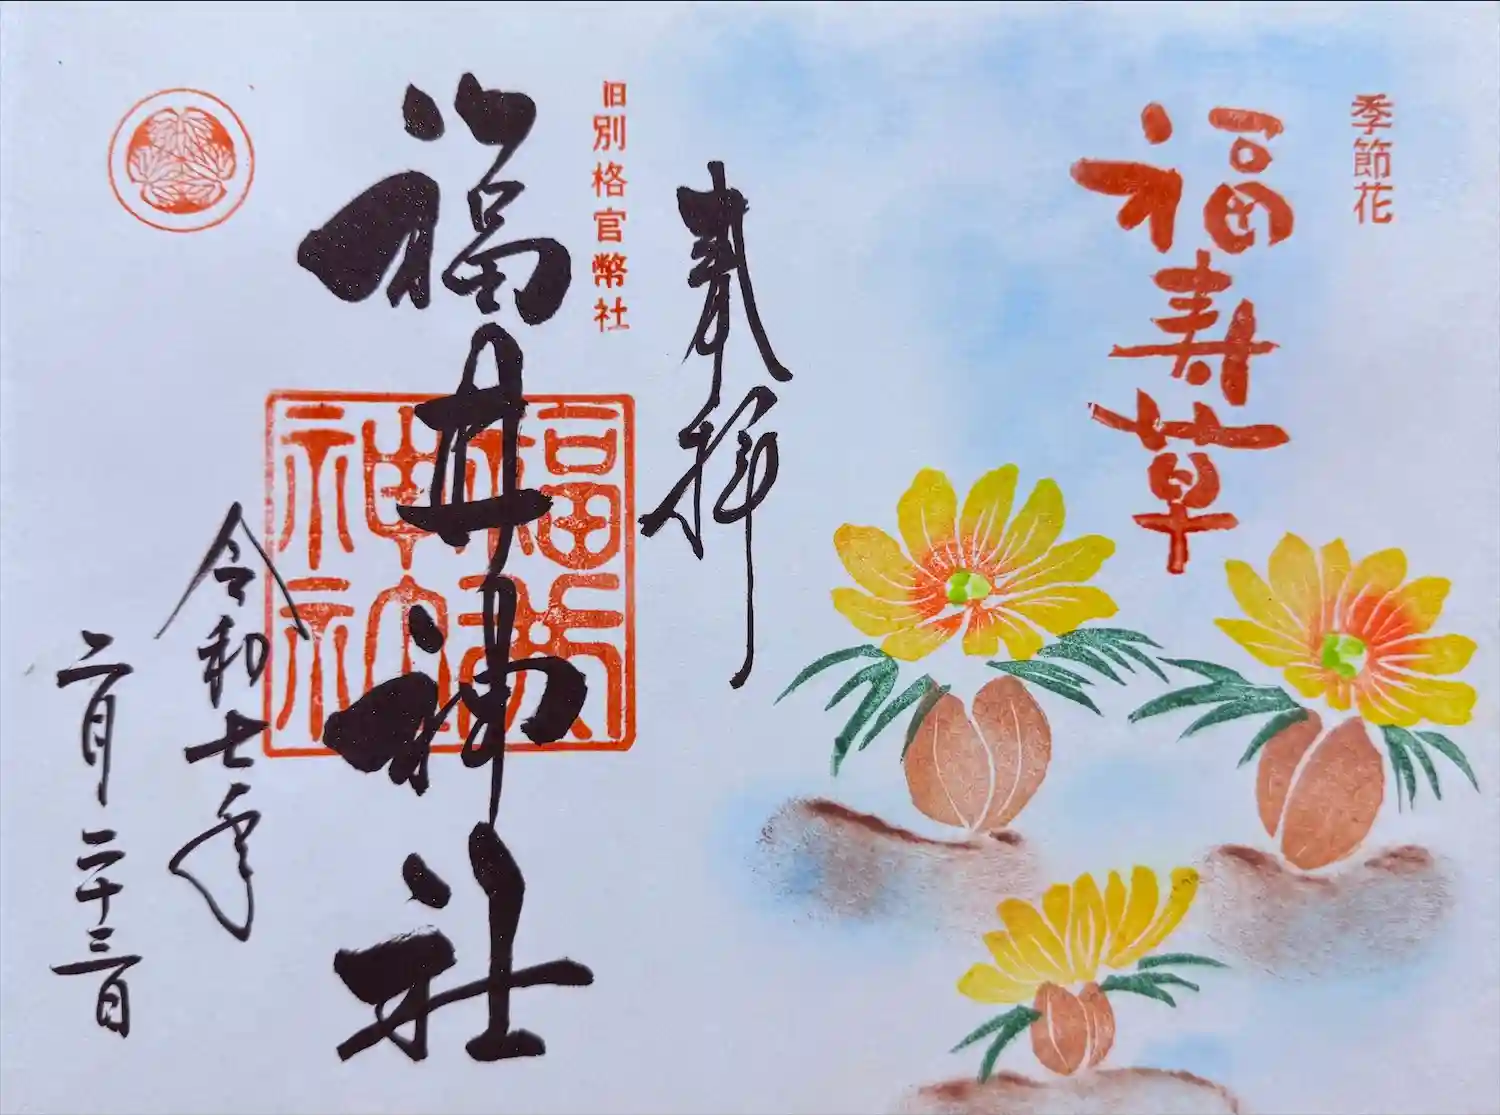 季節花
福寿草
奉拝
旧別格官幣社
福井神社
令和七年
二月二十三日